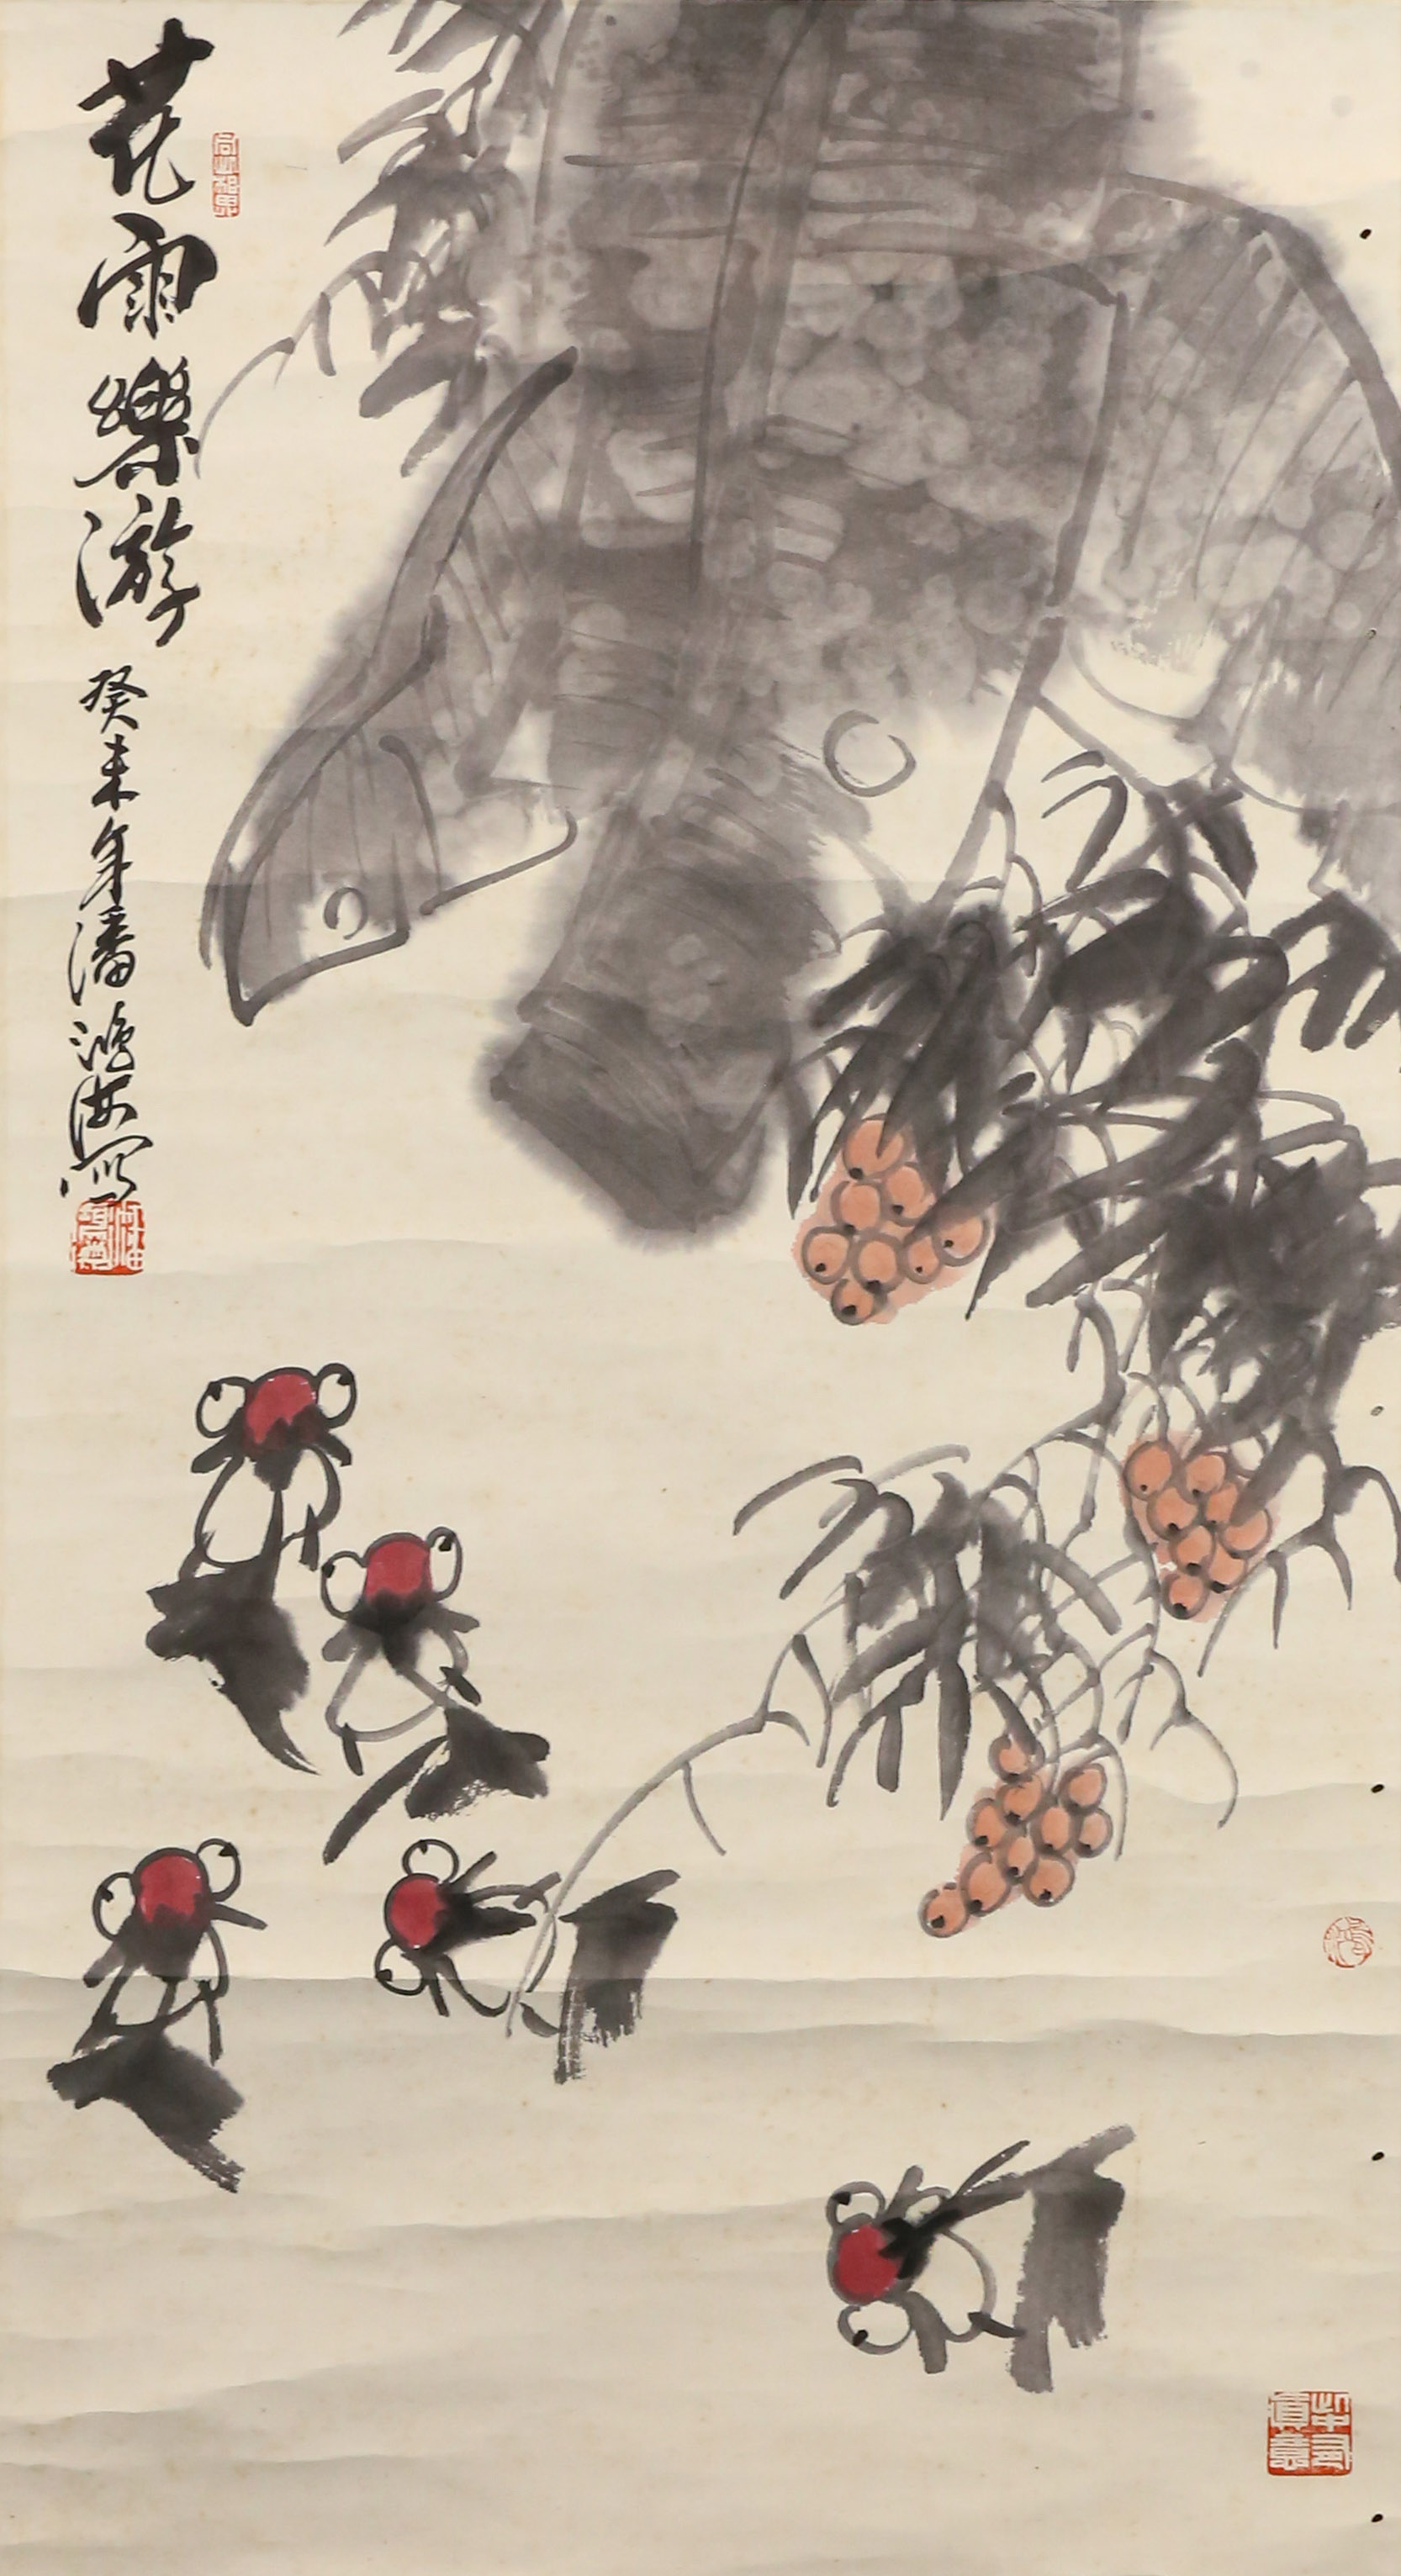 花雨樂游
癸未年潘鴻海寫